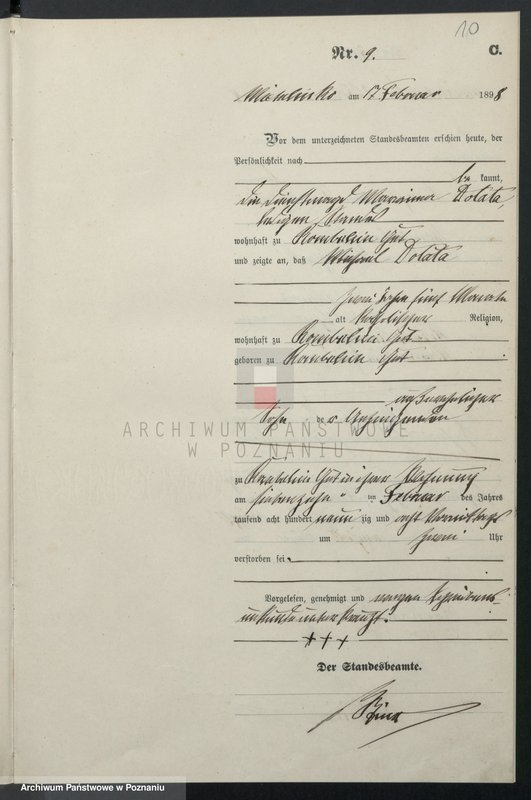 10
Nr. 9.
C.
am 17 Februar 1898
Vor dem unterzeichneten Standesbeamten erschien heute, der
Persönlichkeit nach
be kannt,
die Dienstmagd Marianna Dolata
ledigen Standes
wohnhaft zu Gut
und zeigte an, daß Michael Dolata
zwei Jahre fünf Monate
alt katholischer Religion,
wohnhaft zu Gut
geboren zu Gut
außerehelicher
Sohn der Anzeigenden
ARCHIWUM PAŃSTWOWE
W POZNANIU
zu Gut in ihrer Wohnung
am siebenzehn ten Februar des Jahres
tausend acht hundert neun zig und acht Vormittags
um zwei Uhr
verstorben sei.
Vorgelesen, genehmigt und wegen Schreibens-
unkunde unterkreuzt.
+++
Der Standesbeamte.
Archiwum Państwowe w Poznaniu